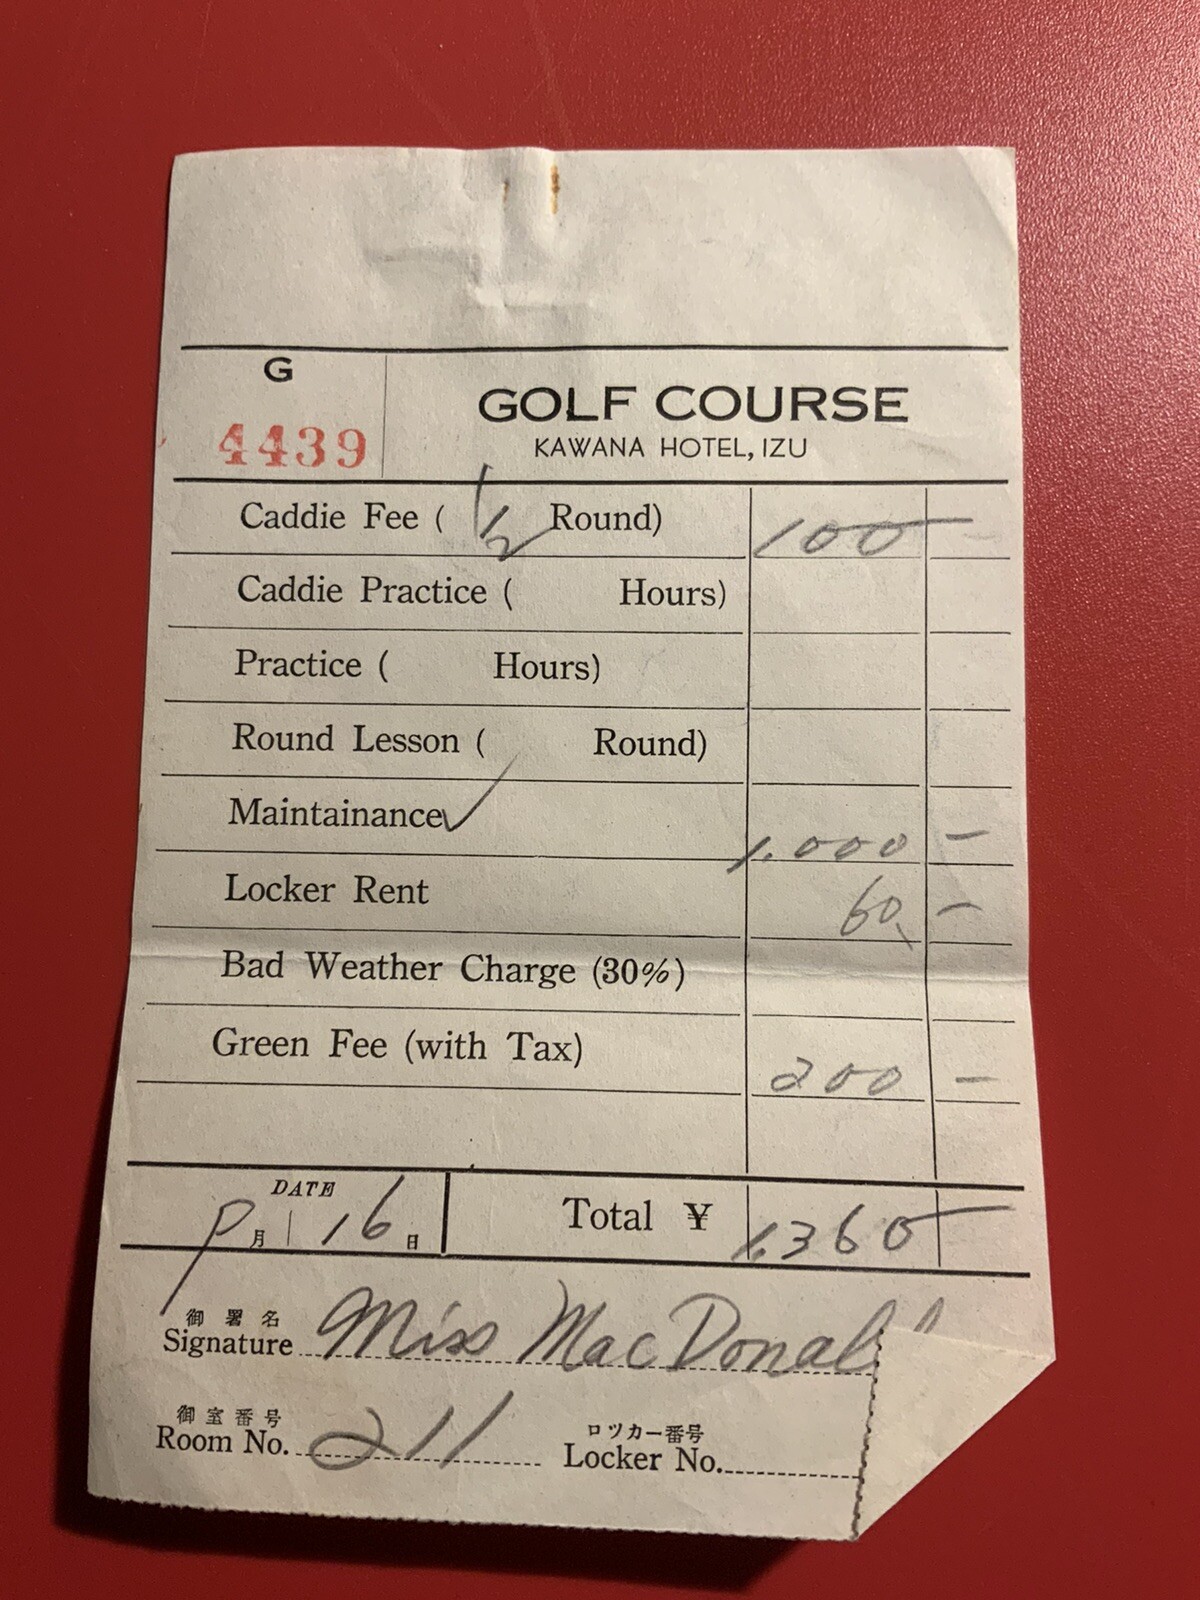 G
4439
GOLF COURSE
KAWANA HOTEL, IZU
Caddie Fee ( 1/2 Round) 100 —
Caddie Practice ( Hours)
Practice ( Hours)
Round Lesson ( Round)
Maintainance ✓ 1.000 —
Locker Rent 60 —
Bad Weather Charge (30%)
Green Fee (with Tax) 200 —
DATE
月 16 日
Total ¥ 1.360 —
御署名
Signature Miss MacDonald
御室番号
Room No. 211
ロツカー番号
Locker No.